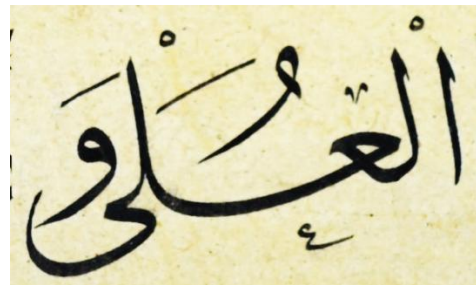 الْعُلَىْ وَ